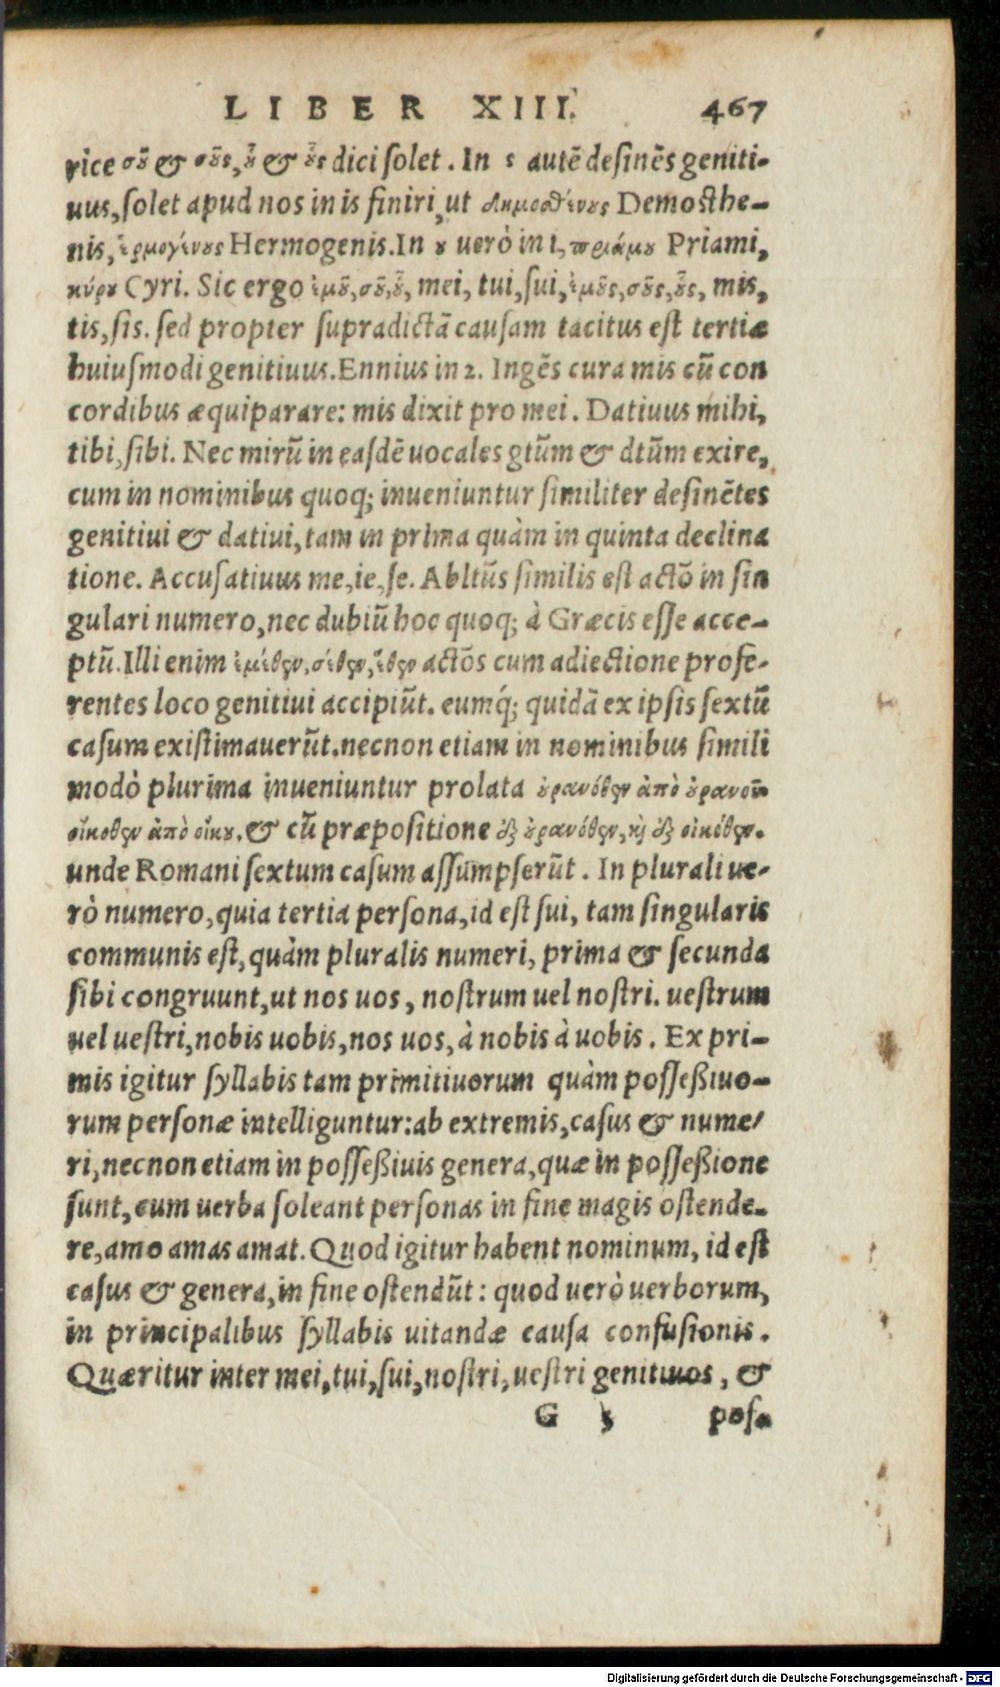 LIBER XIII. 467
rice σȣ̃ & σȣ̃ς, ȣ̃ & ȣ̃ς dici solet. In ς autẽ desinẽs geniti-
uus, solet apud nos in is finiri, ut δημοσθένȣς Demosthe-
nis, ἑρμογένȣς Hermogenis. In ȣ uerò in i, πριάμȣ Priami,
κύρȣ Cyri. Sic ergo ἐμȣ̃, σȣ̃, ȣ̃, mei, tui, sui, ἐμȣ̃ς, σȣ̃ς, ȣ̃ς, mis,
tis, sis. sed propter supradictã causam tacitus est tertiæ
huiusmodi genitiuus. Ennius in 2. Ingẽs cura mis cũ con
cordibus æquiparare: mis dixit pro mei. Datiuus mihi,
tibi, sibi. Nec mirũ in easdẽ uocales gtũm & dtũm exire,
cum in nominibus quoq; inueniuntur similiter desinẽtes
genitiui & datiui, tam in prima quàm in quinta declina
tione. Accusatiuus me, te, se. Abltũs similis est actõ in sin
gulari numero, nec dubiũ hoc quoq; à Græcis esse acce-
ptũ. Illi enim ἐμέθεν, σέθεν, ἕθεν actõs cum adiectione profe-
rentes loco genitiui accipiũt. eumq́; quidã ex ipsis sextũ
casum existimauerũt. necnon etiam in nominibus simili
modò plurima inueniuntur prolata ȣ̓ρανόθεν ἀπὸ ȣ̓ρανοῦ
οἴκοθεν ἀπὸ οἴκȣ, & cũ præpositione ἐξ ȣ̓ρανόθεν, κ̀ ἐξ οἰκόθεν.
unde Romani sextum casum assumpserũt. In plurali ue-
rò numero, quia tertia persona, id est sui, tam singularis
communis est, quàm pluralis numeri, prima & secunda
sibi congruunt, ut nos uos, nostrum uel nostri. uestrum
uel uestri, nobis uobis, nos uos, à nobis à uobis. Ex pri-
mis igitur syllabis tam primitiuorum quàm possessiuo-
rum personæ intelliguntur: ab extremis, casus & nume-
ri, necnon etiam in possessiuis genera, quæ in possessione
sunt, cum uerba soleant personas in fine magis ostende-
re, amo amas amat. Quod igitur habent nominum, id est
casus & genera, in fine ostendũt: quod uerò uerborum,
in principalibus syllabis uitandæ causa confusionis.
Quæritur inter mei, tui, sui, nostri, uestri genitiuos, &
G 5 pos-
Digitalisierung gefördert durch die Deutsche Forschungsgemeinschaft - DFG